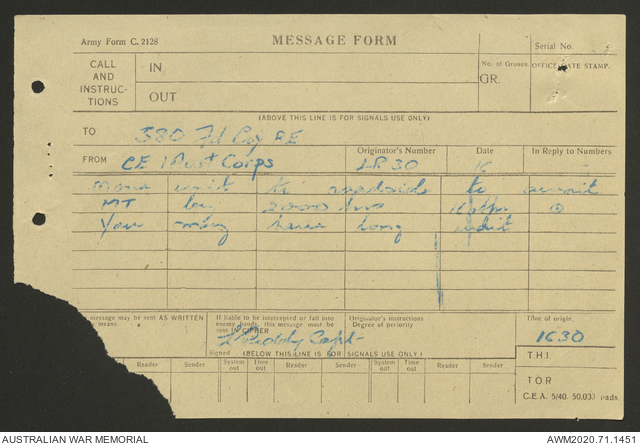 Army Form C. 2128
MESSAGE FORM
Serial No.
CALL AND INSTRUC-TIONS
IN
OUT
No. of Groups
GR.
OFFICE DATE STAMP.
(ABOVE THIS LINE IS FOR SIGNALS USE ONLY)
TO
380 Fd Coy RE
FROM
CE 1 Aust Corps
Originator's Number
LR 30
Date
16
In Reply to
unit to to await
MT by 2000 hrs
Your have long
message may be sent AS WRITTEN
means.
If liable to be intercepted or fall into enemy hands, this message must be sent IN CIPHER
Originator's instructions
Degree of periority
Time of origin.
1630
Capt
Signed
(BELOW THIS LINE IS FOR SIGNALS USE ONLY)
T H I
Reader Sender System out Time out Reader Sender System out Time out Reader Sender
T O R
C.E.A. 5/40. 50,000 pads.
AUSTRALIAN WAR MEMORIAL
AWM2020.71.1451